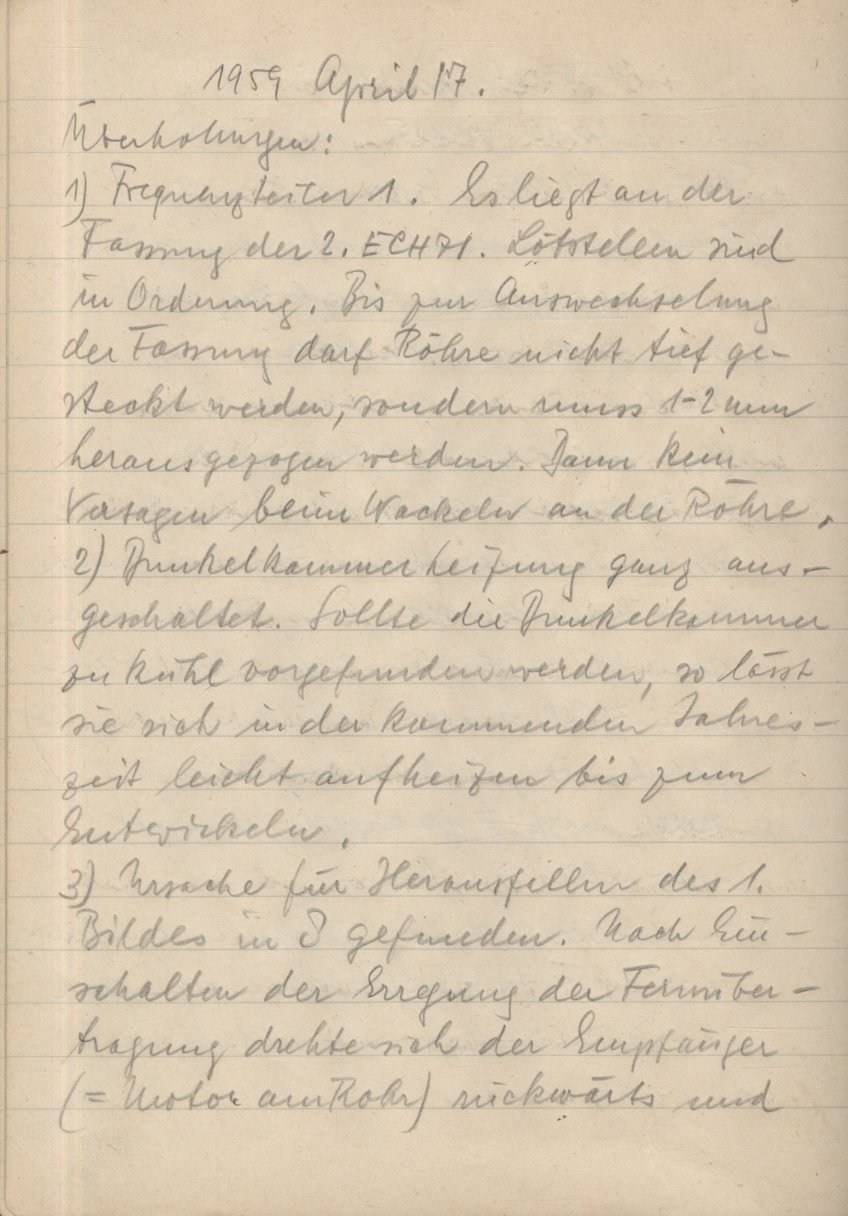 1959 April 17.
Überholungen:
1) Frequenzteiler 1. Es liegt an der
Fassung der 2. ECH71. Lötstellen sind
in Ordnung. Bis zur Auswechselung
der Fassung darf Röhre nicht tief ge-
steckt werden, sondern muss 1-2 mm
herausgezogen werden. Dann kein
Versagen beim Wackeln an der Röhre.
2) Dunkelkammerheizung ganz aus-
geschaltet. Sollte die Dunkelkammer
zu kühl vorgefunden werden, so lässt
sie sich in der kommenden Jahres-
zeit leicht aufheizen bis zum
Entwickeln.
3) Ursache für Herausfallen des 1.
Bildes in δ gefunden. Nach Ein-
schalten der Erregung der Fernüber-
tragung drehte sich der Empfänger
(= Motor am Rohr) rückwärts und